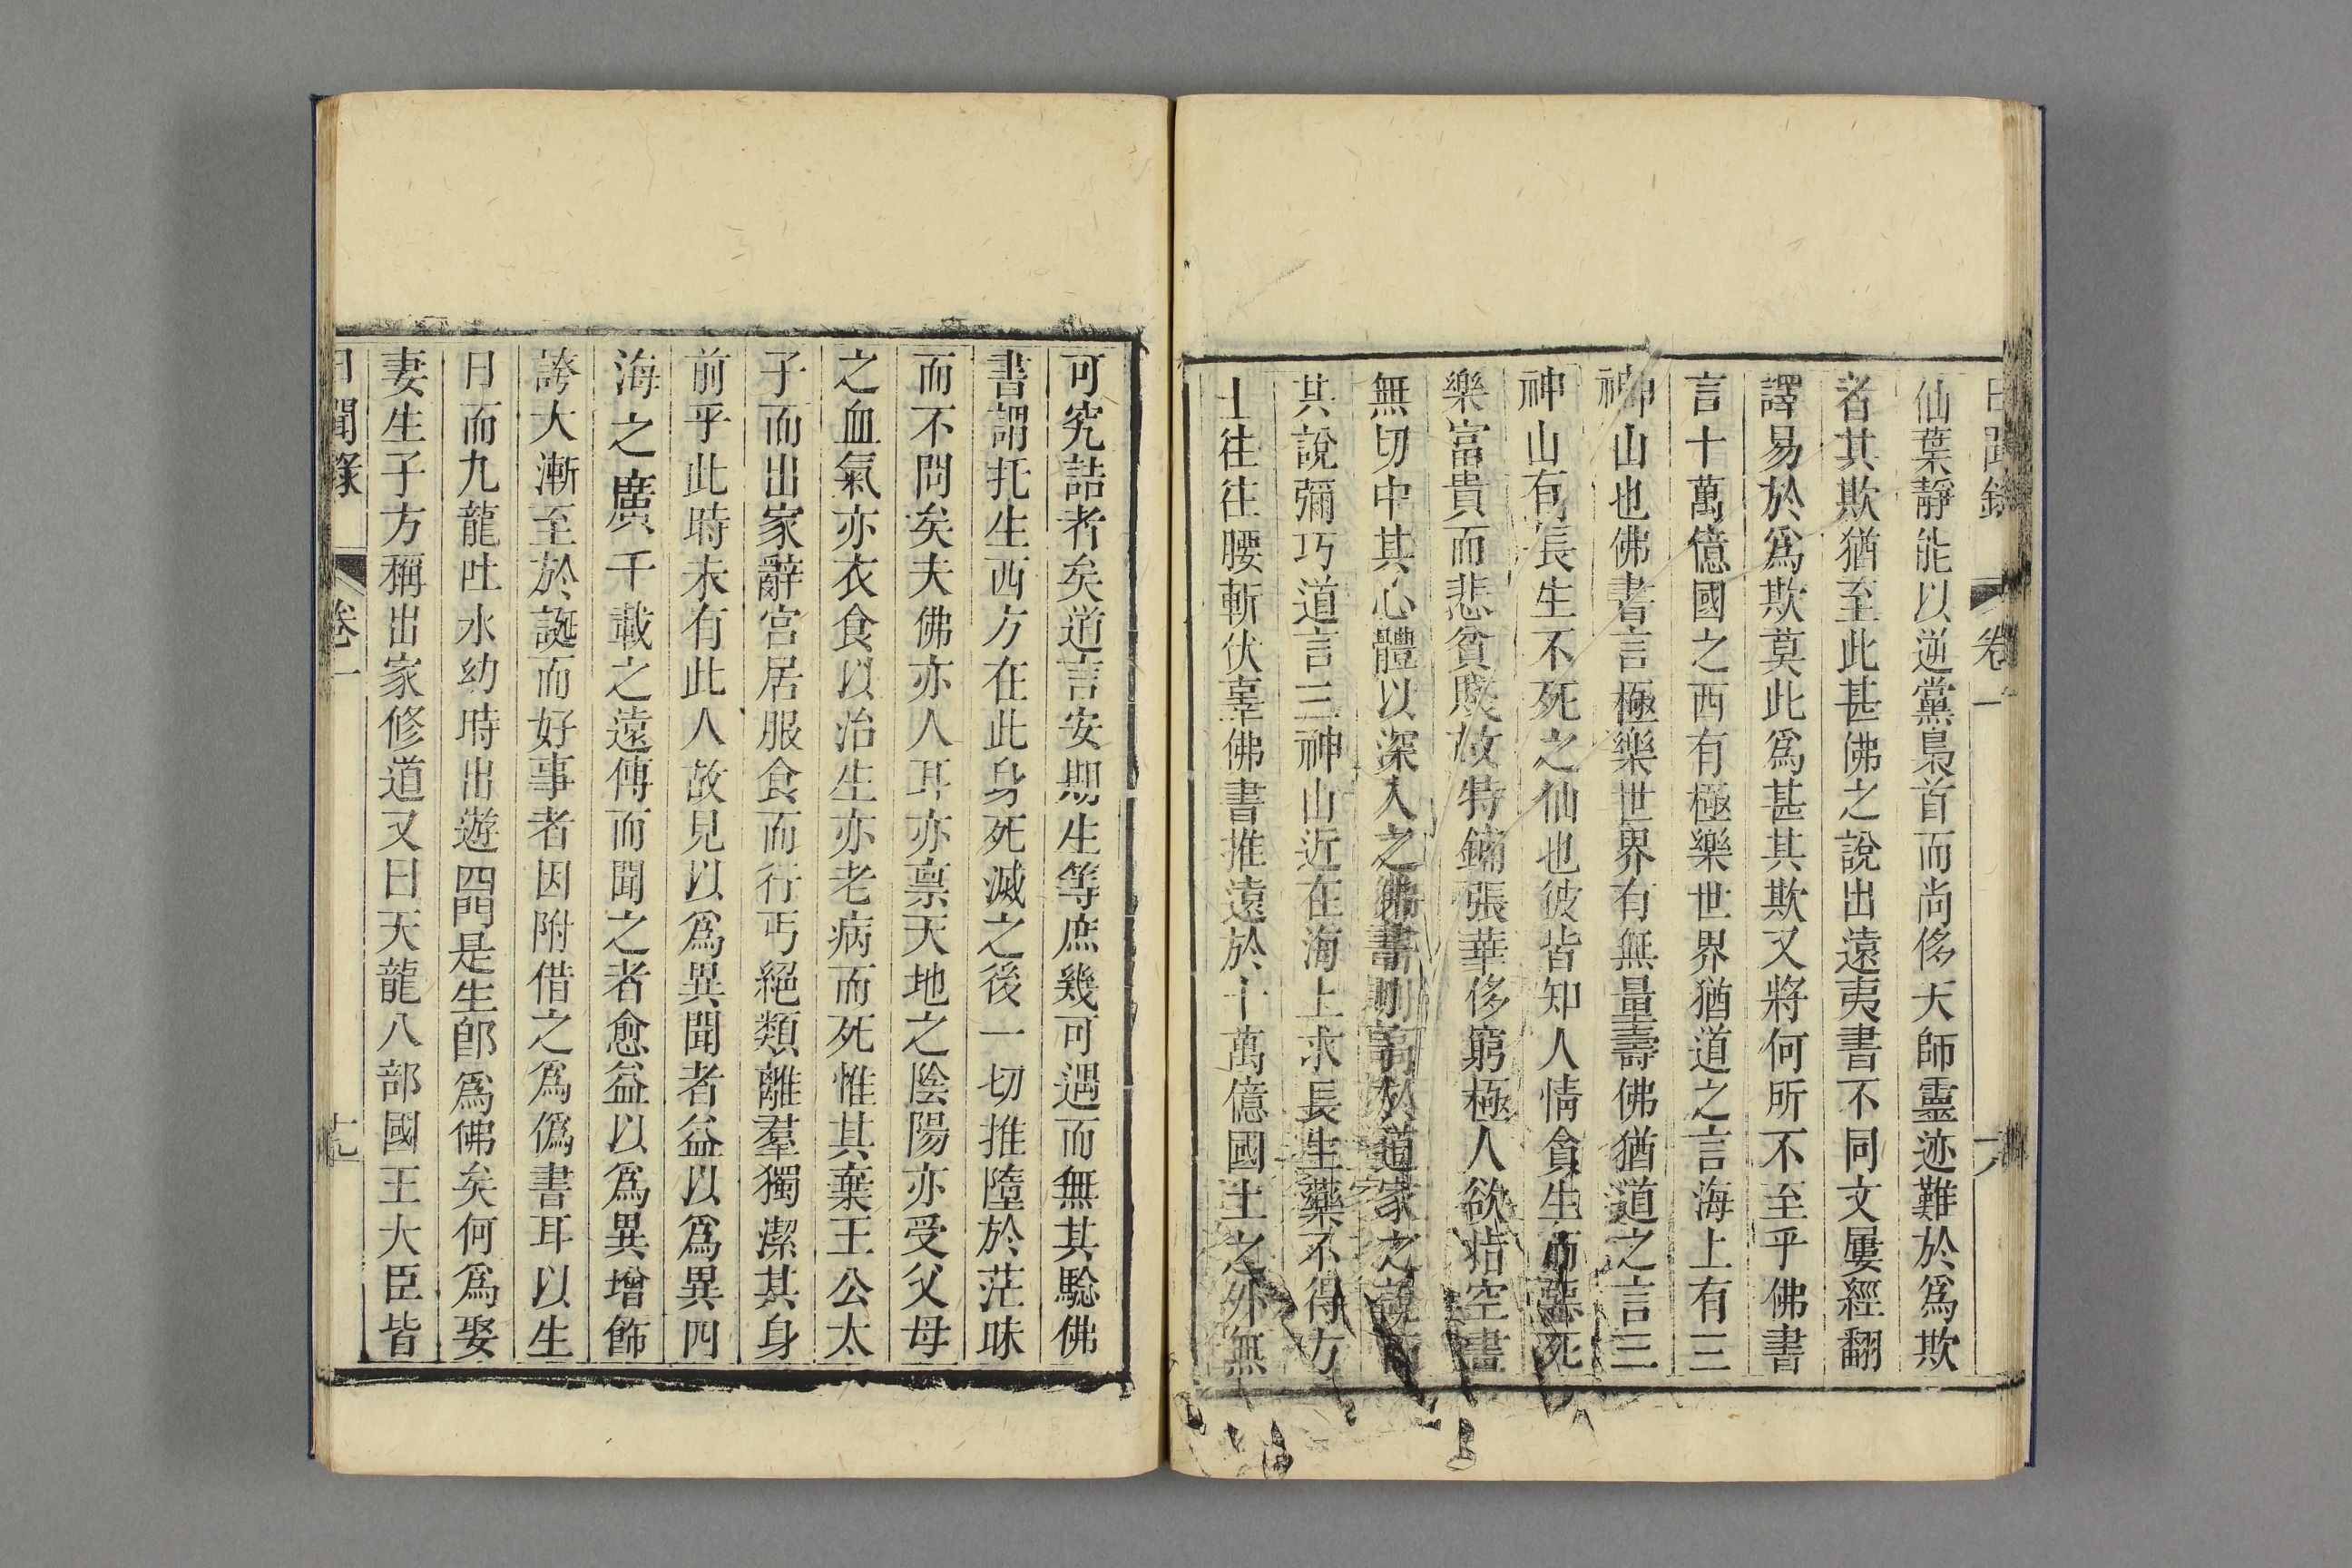 日聞錄
卷一
仙葉靜能以逆黨梟首而尚侈天師靈迹難於爲欺
者其欺猶至此甚佛之說出遠夷書不同文屢經翻
譯易於爲欺莫此爲甚其欺又將何所不至乎佛書
言十萬億國之西有極樂世界猶道之言海上有三
神山也佛書言極樂世界有無量壽佛猶道之言三
神山有長生不死之仙也彼皆知人情貪生而惡死
樂富貴而悲貧賤故特鋪張華侈窮極人欲皆空書
無切中其心體以深入之佛書則高於道家之說而
其說彌巧道言三神山近在海上求長生藥不得方
士往往腰斬伏辜佛書推遠於十萬億國土之外無
可究詰者矣道言安期生等庶幾可遇而無其騐佛
書謂托生西方在此身死滅之後一切推墮於茫昧
而不問矣夫佛亦人耳亦禀天地之陰陽亦受父母
之血氣亦衣食以治生亦老病而死惟其棄王公太
子而出家辭宮居服食而行丐絕類離羣獨潔其身
前乎此時未有此人故見以爲異聞者益以爲異四
海之廣千載之遠傳而聞之者愈益以爲異增飾
誇大漸至於誕而好事者因附借之爲僞書耳以生
日而九龍吐水幼時出遊四門是生卽爲佛矣何爲娶
妻生子方稱出家修道又曰天龍八部國王大臣皆
日聞錄
卷一
十九